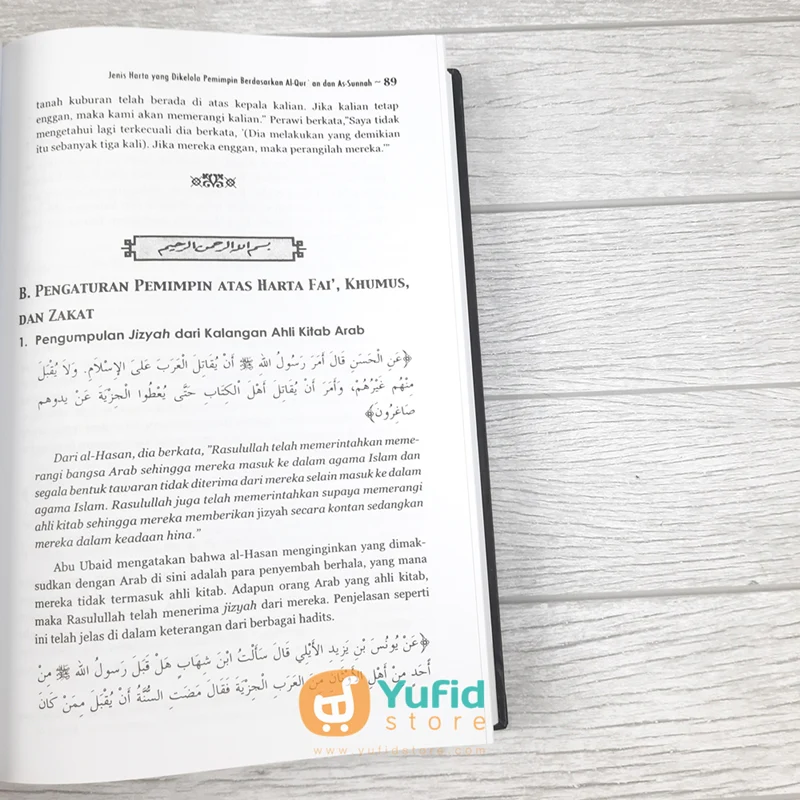 Jenis Harta yang Dikelola Pemimpin Berdasarkan Al-Qur`an dan As-Sunnah ~ 89
tanah kuburan telah berada di atas kepala kalian. Jika kalian tetap
enggan, maka kami akan memerangi kalian." Perawi berkata,"Saya tidak
mengetahui lagi terkecuali dia berkata, '(Dia melakukan yang demikian
itu sebanyak tiga kali). Jika mereka enggan, maka perangilah mereka.'"
بسم الله الرحمن الرحيم
B. PENGATURAN PEMIMPIN ATAS HARTA FAI', KHUMUS,
DAN ZAKAT
1. Pengumpulan Jizyah dari Kalangan Ahli Kitab Arab
﴿عَنِ الْحَسَنِ قَالَ أَمَرَ رَسُولُ اللهِ ﷺ أَنْ يُقَاتِلَ الْعَرَبَ عَلَى الْإِسْلَامِ. وَلَا يُقْبَلَ
مِنْهُم غَيْرُهُمْ، وَأَمَرَ أَنْ يُقَاتِلَ أَهْلَ الْكِتَابِ حَتَّى يُعْطُوا الْجِزْيَةَ عَنْ يدوهم
صَاغِرُونَ﴾
Dari al-Hasan, dia berkata, "Rasulullah telah memerintahkan meme-
rangi bangsa Arab sehingga mereka masuk ke dalam agama Islam dan
segala bentuk tawaran tidak diterima dari mereka selain masuk ke dalam
agama Islam. Rasulullah juga telah memerintahkan supaya memerangi
ahli kitab sehingga mereka memberikan jizyah secara kontan sedangkan
mereka dalam keadaan hina."
Abu Ubaid mengatakan bahwa al-Hasan menginginkan yang dimak-
sudkan dengan Arab di sini adalah para penyembah berhala, yang mana
mereka tidak termasuk ahli kitab. Adapun orang Arab yang ahli kitab,
maka Rasulullah telah menerima jizyah dari mereka. Penjelasan seperti
ini telah jelas di dalam keterangan dari berbagai hadits.
﴿عَنْ يُونُسَ بْنِ يَزِيدَ الْأَيْلِي قَالَ سَأَلْتُ ابْنَ شِهَابٍ هَلْ قَبِلَ رَسُولُ اللهِ ﷺ مِنْ
أَحَدٍ مِنْ أَهْلِ الْأَوْثَانِ مِنَ الْعَرَبِ الْجِزْيَةَ فَقَالَ مَضَتِ السُّنَّةُ أَنْ يُقْبَلَ مِمَنْ كَانَ
Yufid
store
www.yufidstore.com